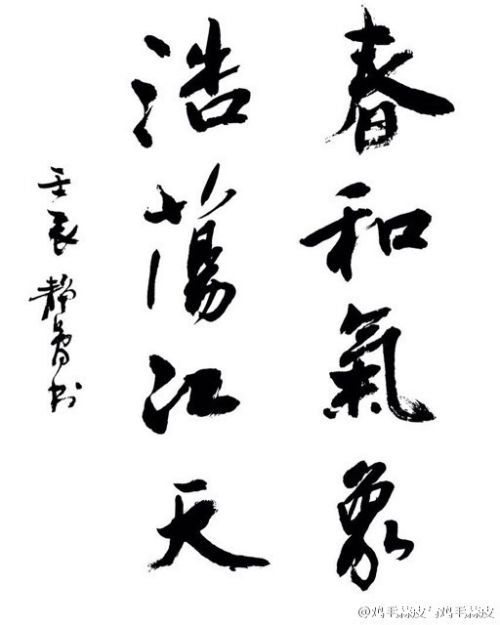 春和氣象
浩蕩江天
壬辰 靜
@鸡毛蒜皮与鸡毛蒜皮